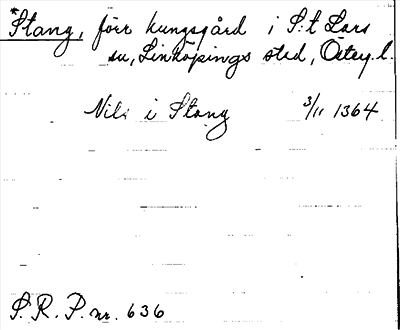 *Stang, förr kungsgård i S:t Lars
sn, Linköpings stad, Östg. l.
Nils i Stang 3/11 1364
S. R. P. nr. 636